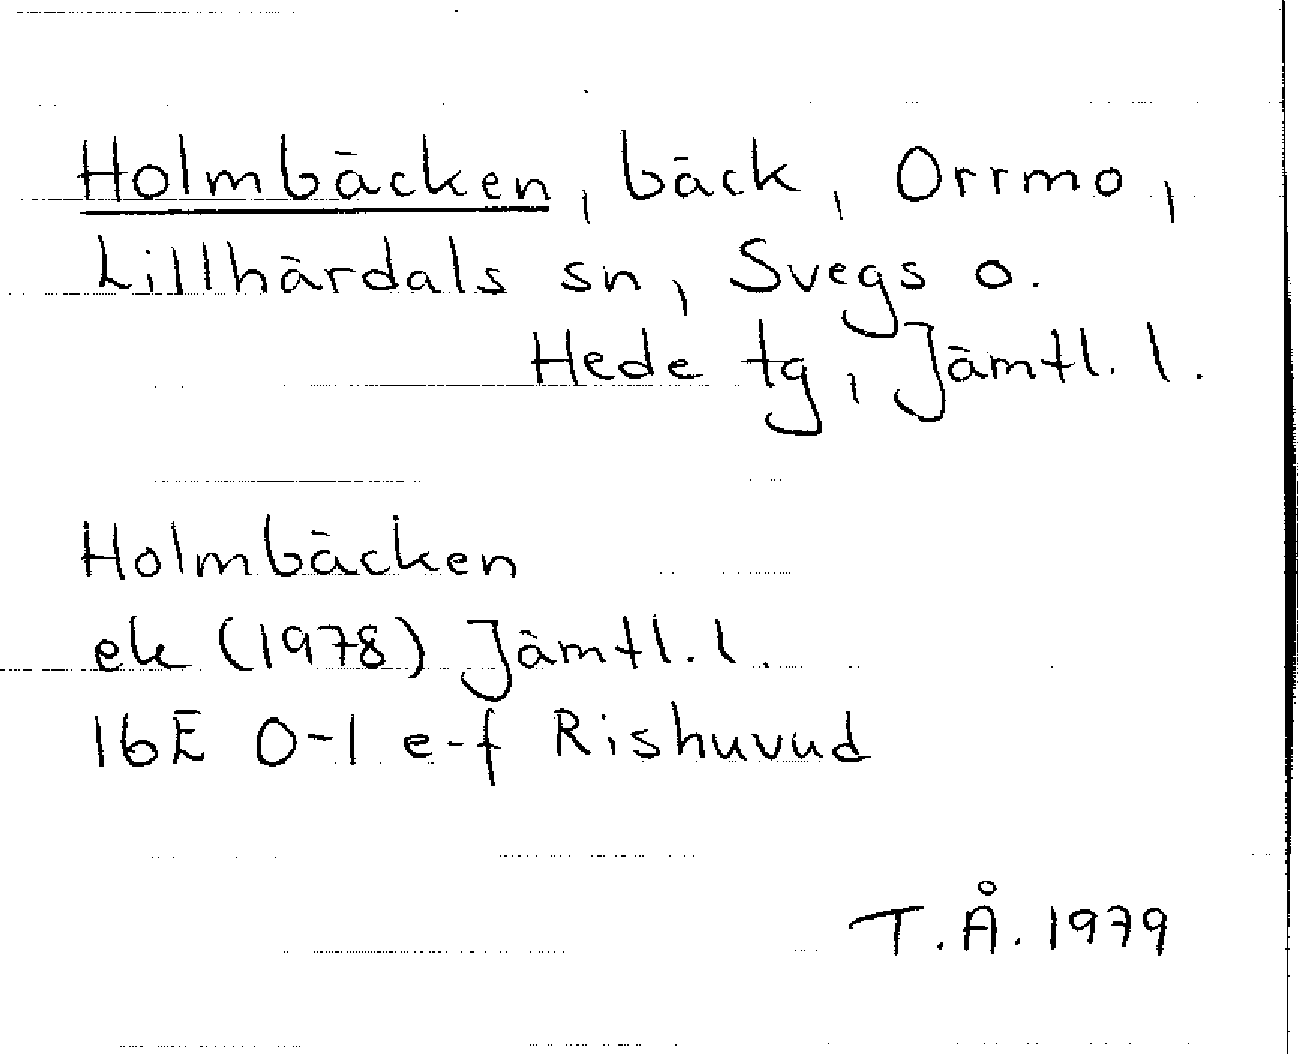 Holmbäcken, bäck, Orrmo,
Lillhärdals sn, Svegs o.
Hede tg, Jämtl. l.
Holmbäcken
ek (1978) Jämtl. l.
16E 0-1 e-f Rishuvud
T.Å. 1979